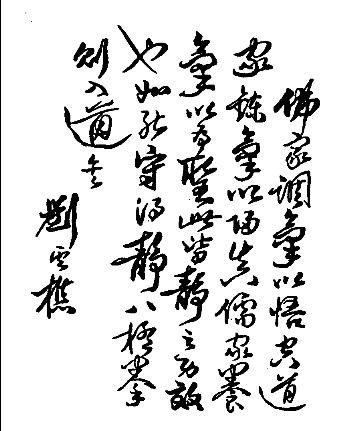 佛家調氣以悟空道
家鍊氣以歸真儒家養
氣以為聖此皆靜之功效
也如能守得靜八極拳
則入道矣
劉雲樵